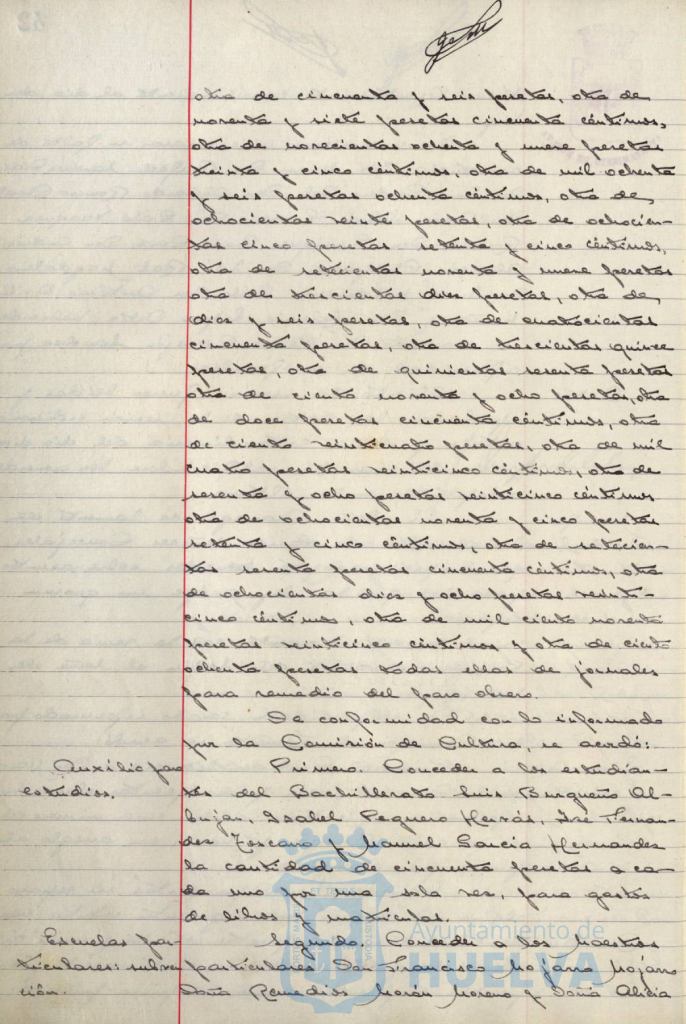 otra de cincuenta y seis pesetas, otra de
noventa y siete pesetas cincuenta céntimos,
otra de novecientas ochenta y nueve pesetas
treinta y cinco céntimos, otra de mil ochenta
y seis pesetas ochenta céntimos, otra de
ochocientas veinte pesetas, otra de ochocien-
tas cinco pesetas setenta y cinco céntimos,
otra de setecientas noventa y nueve pesetas
otra de trescientas doce pesetas, otra de
diez y seis pesetas, otra de cuatrocientas
cincuenta pesetas, otra de trescientas quince
pesetas, otra de quinientas sesenta pesetas
otra de ciento noventa y ocho pesetas, otra
de doce pesetas cincuenta céntimos, otra
de ciento veinticuatro pesetas, otra de mil
cuatro pesetas veinticinco céntimos, otra de
sesenta y ocho pesetas veinticinco céntimos
otra de ochocientas noventa y cinco pesetas
setenta y cinco céntimos, otra de setecien-
tas sesenta pesetas cincuenta céntimos, otra
de ochocientas diez y ocho pesetas veinti-
cinco céntimos, otra de mil ciento noventa
pesetas veinticinco céntimos y otra de ciento
ochenta pesetas todas ellas de jornales
para remedio del paro obrero.
De conformidad con lo informado
por la Comisión de Cultura, se acordó:
Auxilio para
estudios.
Primero. Conceder a los estudian-
tes del Bachillerato Luis Burgueño Al-
buján, Isabel Peguero Hervás, José Fernan-
dez Toscano y Manuel García Hernandez
la cantidad de cincuenta pesetas a ca-
da uno por una sola vez, para gastos
de libros y matrículas.
Escuelas par-
ticulares: subven
ción.
Segundo. Conceder a los Maestros
particulares Don Francisco Mojarro Mojarro
Doña Remedios Morón Moreno y Doña Alicia
Ayuntamiento de
HUELVA